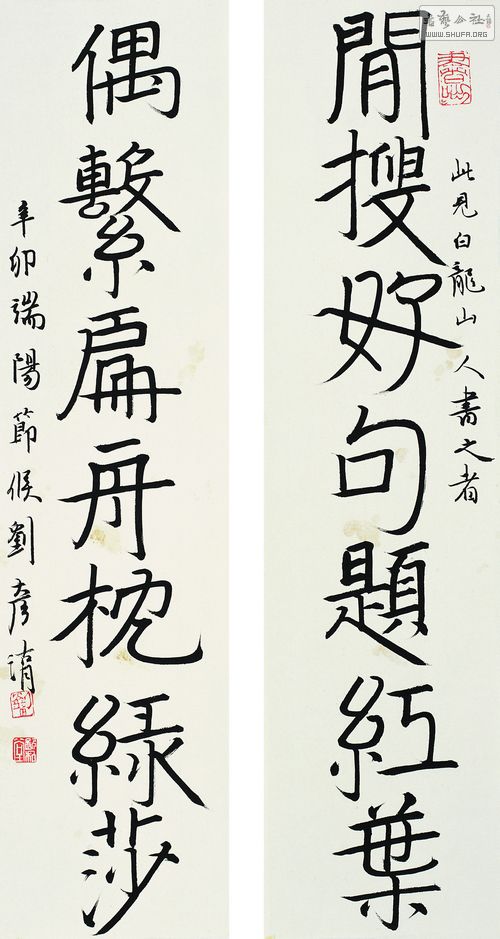 書藝公社
WWW.SHUFA.ORG
此見白龍山人書之者
閒搜好句題紅葉
偶繫扁舟枕綠莎
辛卯端陽節候劉彥